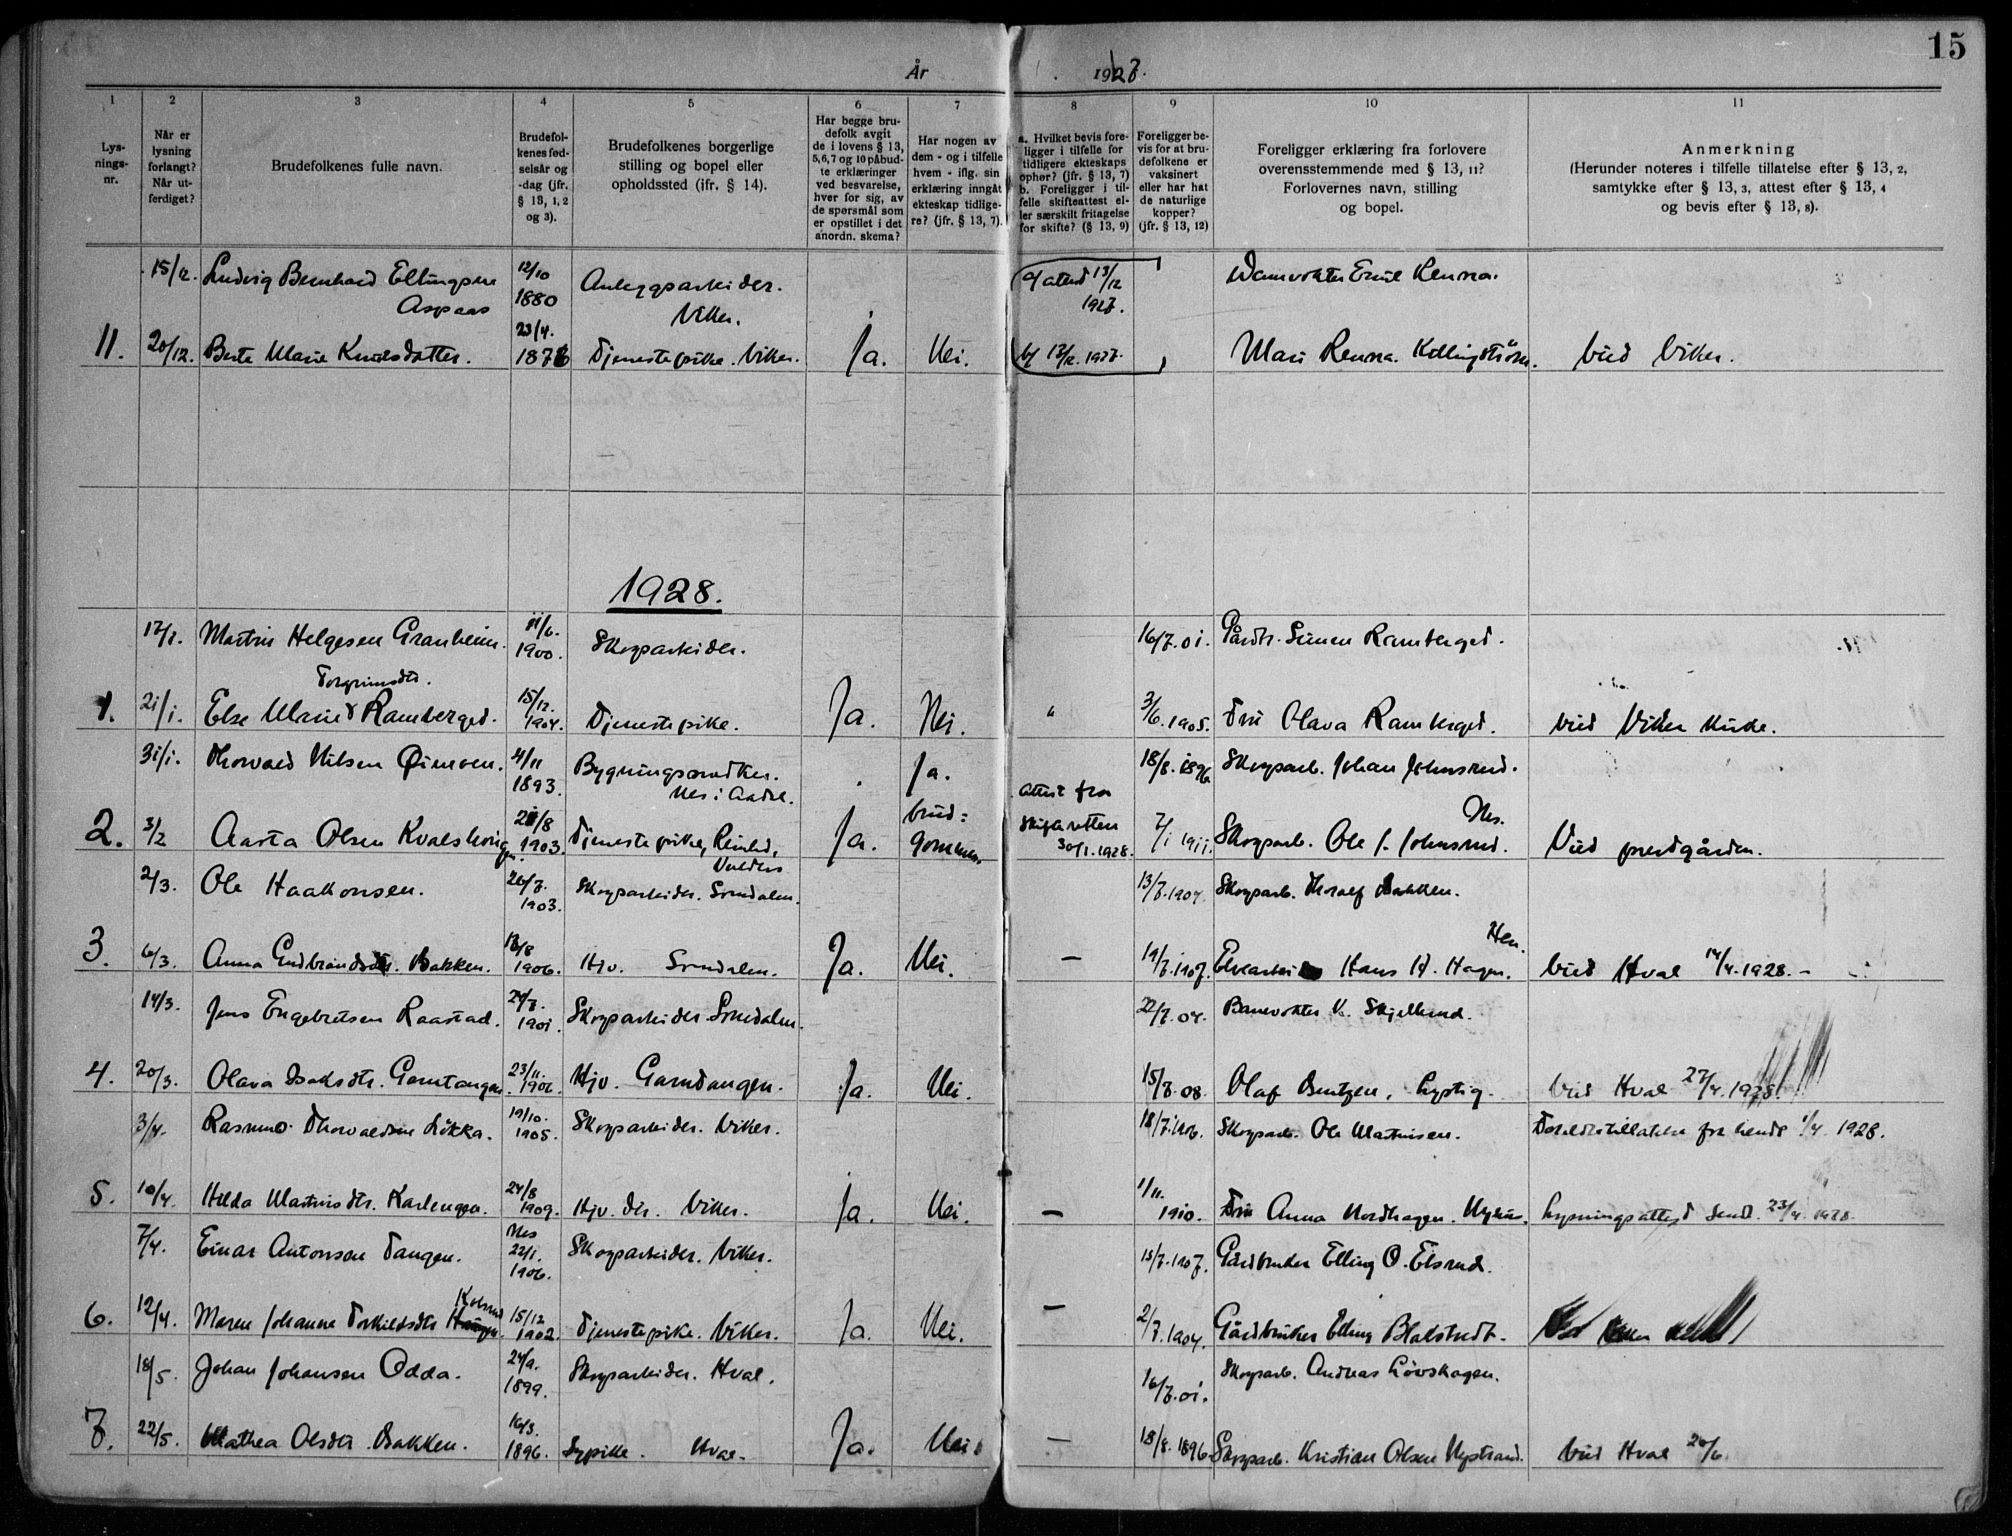 15
År 1927.
1 2 3 4 5 6 7 8 9 10 11
Lysnings-nr.
Når er lysning forlangt? Når ut-ferdiget?
Brudefolkenes fulle navn.
Brudefol-kenes fød-selsår og -dag (jfr. § 13, 1, 2 og 3).
Brudefolkenes borgerlige stilling og bopel eller opholdssted (ifr. § 14).
Har begge bru-defolk avgit de i lovens § 13, 5,6,7 og 10 påbud-te erklæringer ved besvarelse, hver for sig, av de spørsmål som er opstillet i det anordn. skema?
Har nogen av dem - og i tilfelle hvem - iflg. sin erklæring inngåt ekteskap tidlige-re? (jfr. § 13, 7).
a. Hvilket bevis fore-ligger i tilfelle for tidligere ekteskaps ophør? (jfr. § 13, 7) b. Foreligger i til-felle skifteattest el-ler særskilt fritagelse for skifte? (§ 13, 9)
Foreligger be-vis for at bru-defolkene er vaksinert eller har hat de naturlige kopper? (jfr. § 13, 12)
Foreligger erklæring fra forlovere overensstemmende med § 13, 11? Forlovernes navn, stilling og bopel.
Anmerkning (Herunder noteres i tilfelle tillatelse efter § 13, 2, samtykke efter § 13, 3, attest efter § 13, 4 og bevis efter § 13, 8).
15/12. Ludvig Bernhard Ellingsen Aspaas 12/10 1880 Anleggsarbeider. Viker. a/ attest 13/12 1927. Damvokter Emil Renna.
11. 20/12. Berte Marie Knutsdatter. 23/4. 1876 Tjenestepike. Viker. Ja. Nei. b/ 13/12. 1927. Mari Renna. Killingstrøm. Viet Viker.
1928.
17/1. Martin Helgesen Granheim. 11/6. 1900. Skogarbeider. 16/7.01. Gårdbr. Simen Ramberget.
Torgrimsdtr.
1. 21/1. Else Marie Ramberget. 15/12. 1904. Tjenestepike. Ja. Nei. " 3/6.1905. Fru Olava Ramberget. Viet Viker kirke.
31/1. Thorvald Nilsen Øimoen. 4/11 1893. Bygningssnekker. Nes i Aadal. Ja. 18/8.1896 Skogarb. Johan Johnsrud.
2. 3/2 Aasta Olsen Kvalshaugen. 21/8 1903. Tjenestepike, Reinli, Valdres Ja. brud=gommen. Attest fra skifteretten 30/1.1928. 7/1 1911. Skogarb. Ole J. Johnsrud. Nes. Viet prestgården.
2/3. Ole Haakonsen. 26/7. 1903. Skogarbeider. Somdalen. 13/7.1904. Skogarb. Thoralf Bakken.
3. 6/3. Anna Gudbrandsdtr. Bakken. 13/8 1906. Hjv. Somdalen. Ja. Nei. — 19/7.1907. Hans H. Hagen. Hen. Viet Hval 14/4.1928. -
14/3. Jens Engebretsen Raastad. 24/7. 1901. Skogarbeider Somdalen. 22/7.04. Banevokter K. Skjelbred.
4. 20/3. Olava Isaksdtr. Gomtangen. 23/11. 1906. Hjv. Gomtangen. Ja. Nei. 15/7.08. Olaf Berntzen, Viet Hval 27/4.1928.
3/4. Rasmus Thorvaldsen Løkka. 19/10. 1905. Skogarbeider. Viker. 18/7.1906. Skogarb. Ole Martinsen. Foreldretillatelse for hende 1/4. 1928.
5. 10/4. Hilda Martinsdtr. Karlengen. 24/8 1909. Hjv. dtr. Viker. Ja. Nei. — 1/11. 1910. Fru Anna Nordhagen. Lysningsattest sendt. 23/4.1928
7/4. Einar Antonsen Tangen. Nes 22/1. 1906. Skogarbeider. Viker. 15/7.1907. Gårdbruker Elling O. Elsrud.
6. 12/4. Maren Johanne Torkildsdtr Kolsrud 15/12 1902. Tjenestepike. Viker. Ja. Nei. — 2/7.1904. Gårdbruker Elling Blakstvedt.
18/5. Johan Johansen Odda. 24/9. 1899. Skogarbeider. Hval. 16/7.01. Skogarb. Andreas Løvskogen.
7. 22/5. Mathea Olsdtr Bakken. 16/3. 1896. Sypike. Hval. Ja. Nei. — 18/8.1896 Skogarb. Kristian Olsen Nystrand. Viet Hval 20/6.